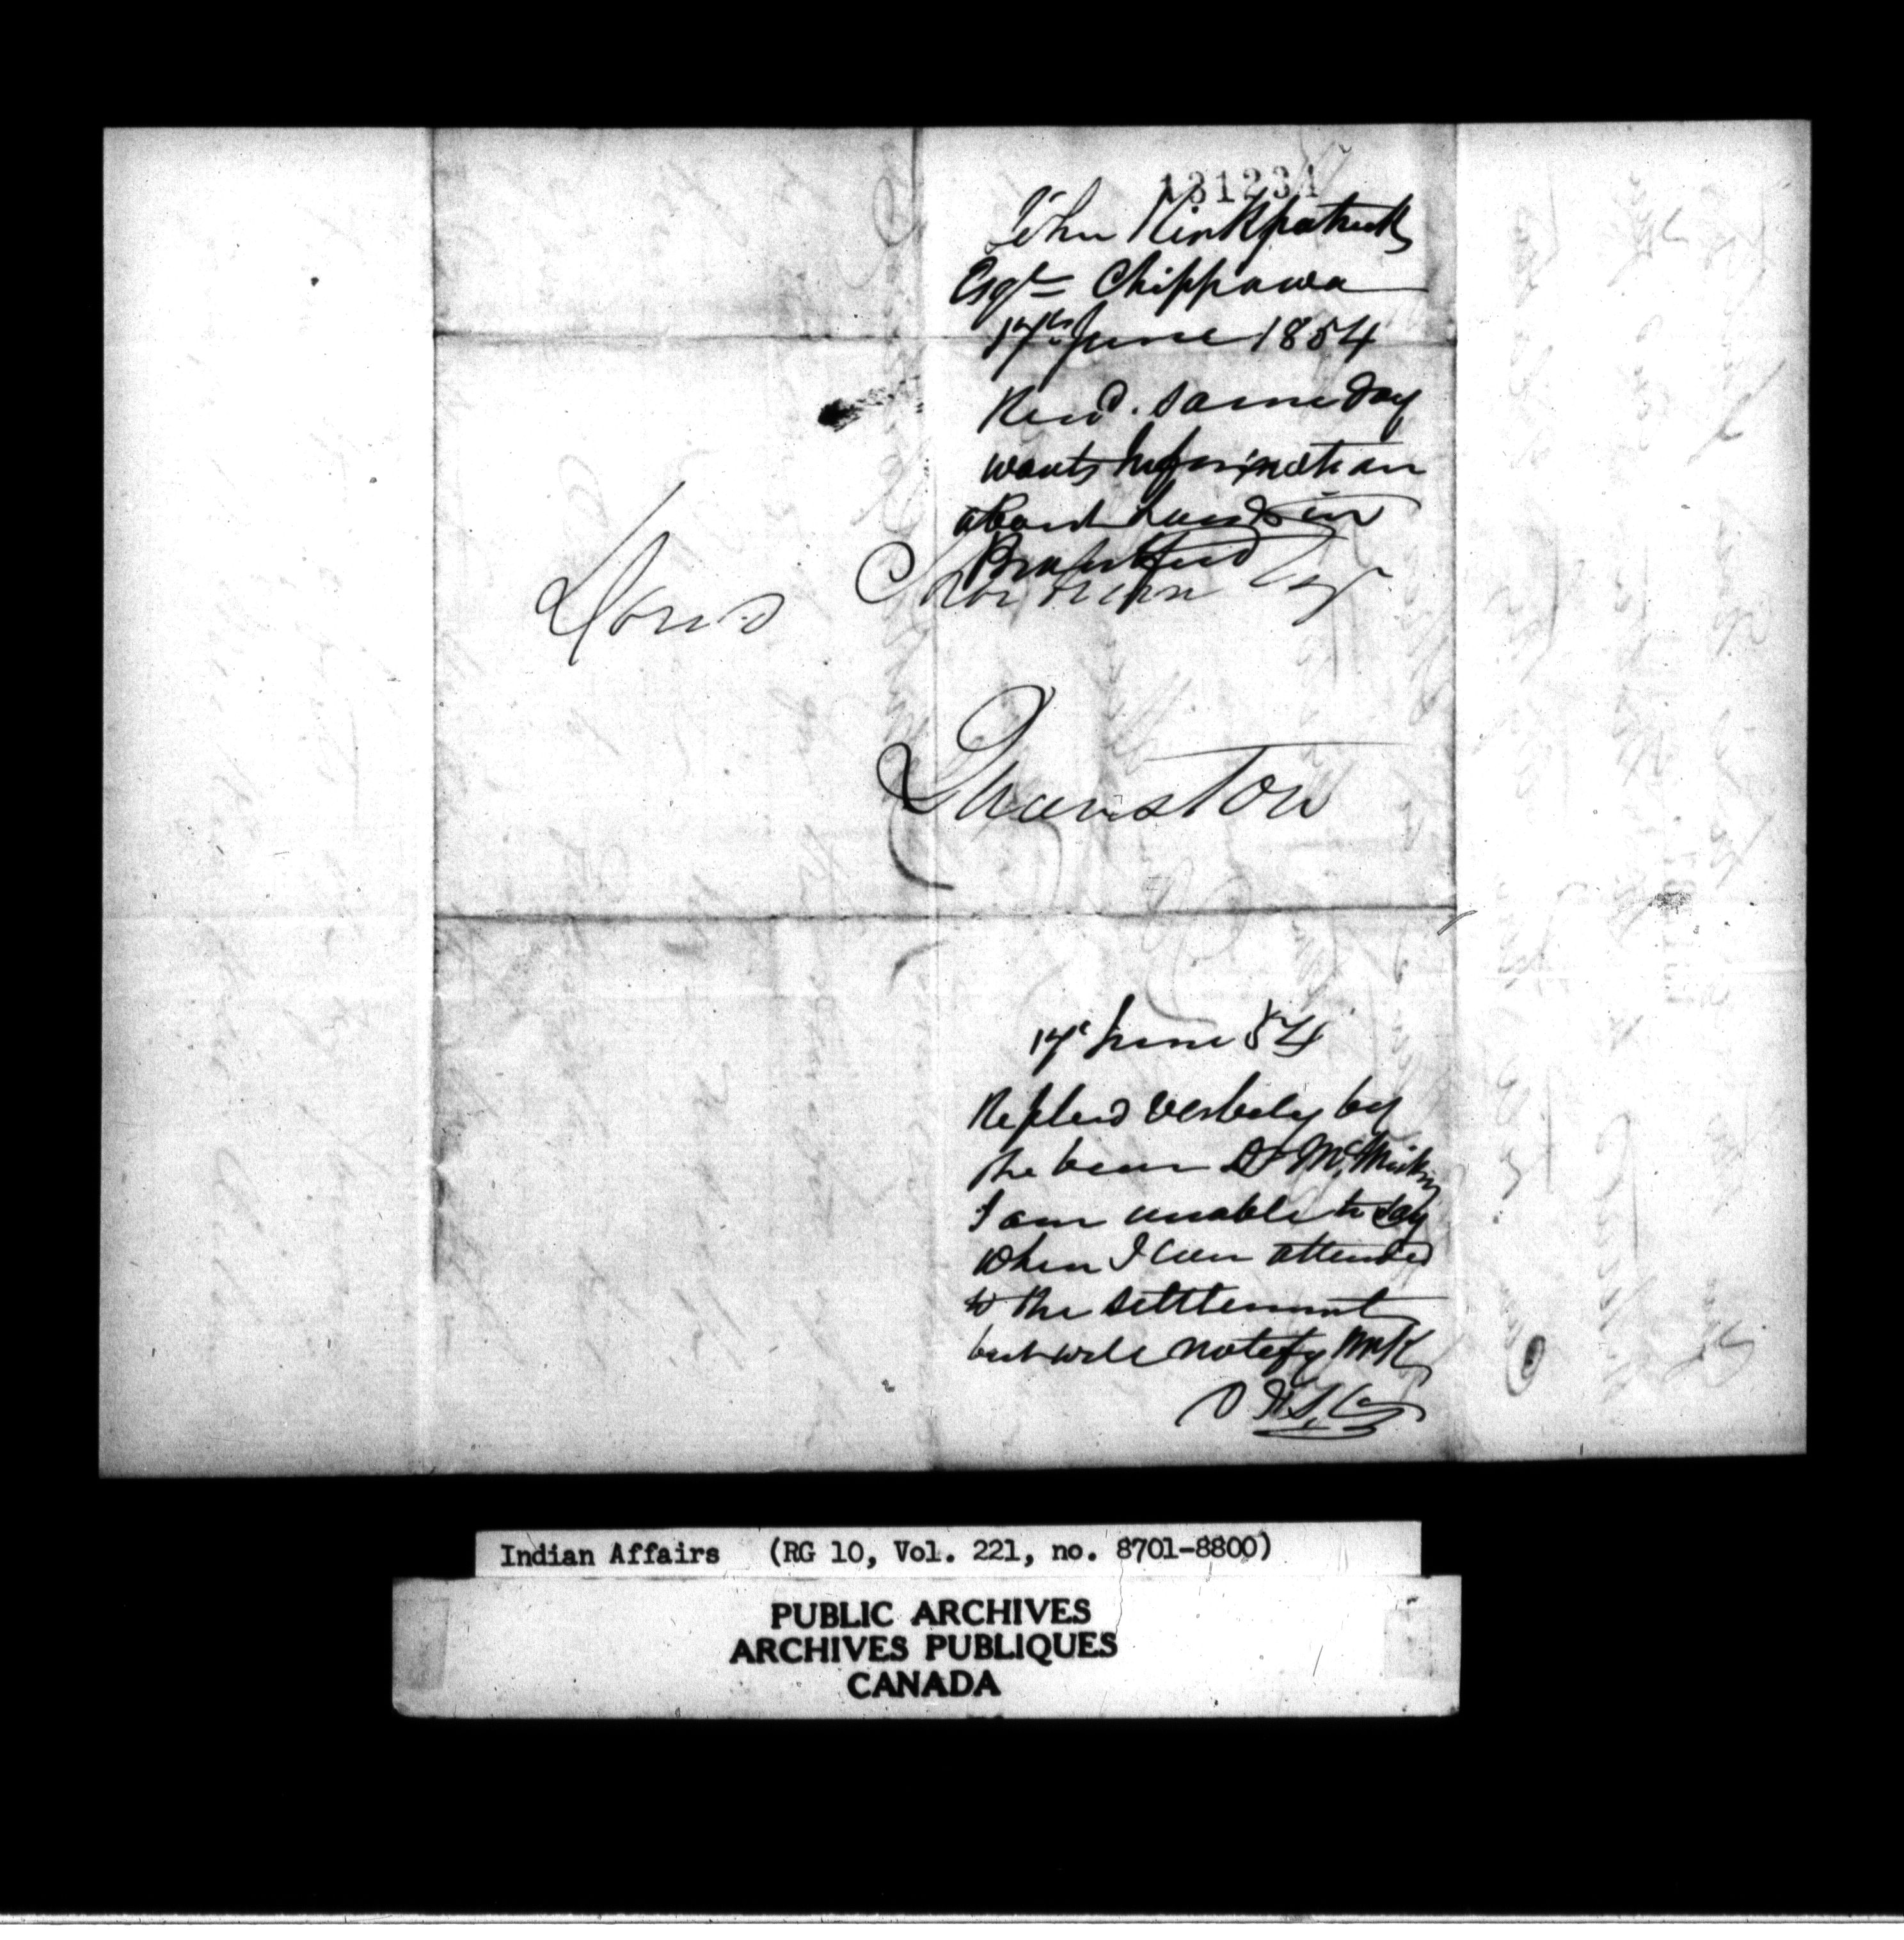 131234
John Kirkpatrick
Esqr Chippawa
17th June 1854
Recd. same day
wants information
about Lands in
Brantford
Thorburn Esqr
Queenston
17th June 54
Replied verbaly by
the bearer Dr McMicking
I am unable to say
when I can attend
to the settlement
but will notify Mr K
Indian Affairs (RG 10, Vol. 221, no. 8701-8800)
PUBLIC ARCHIVES
ARCHIVES PUBLIQUES
CANADA